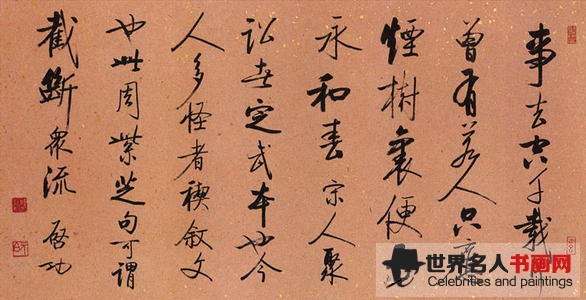 事去空千載何
曾有若人只應
煙樹裏便是
永和春宋人聚
訟者定武本也今
人多怪者禊敘文
也此周紫芝句可謂
截斷眾流 啓功
世界名人书画网
Celebrities and paintings